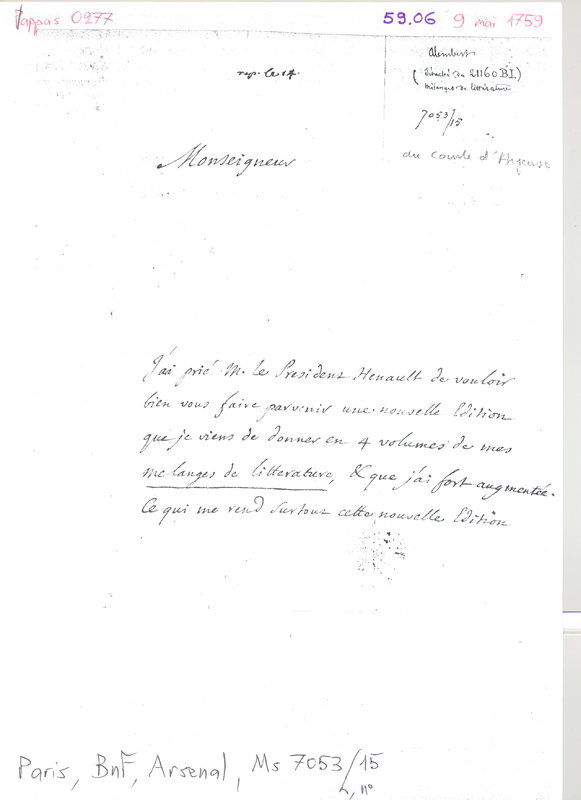 Pappas 0277
59.06
9 mai 1759
rep. le 14.
Alembert
(Extrait du 21160 B.I.)
Mélanges de littérature
7053/15
au comte d'Argenson
Monseigneur
J'ai prié M. le President Henault de vouloir
bien vous faire parvenir une nouvelle Edition
que je viens de donner en 4 volumes de mes
melanges de litterature, & que j'ai fort augmentée.
Ce qui me rend surtout cette nouvelle Edition
Paris, BnF, Arsenal, Ms 7053/15